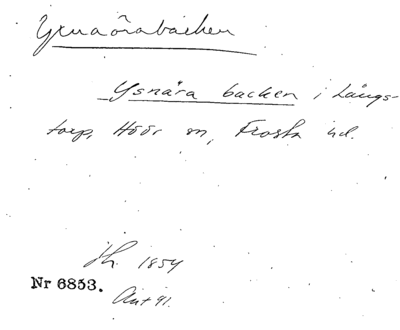 Yxnaörabacken
Ysnära backen i Långs-
torp, Höör sn, Frosta hd.
1854
Nr 6853.
Ant 91.